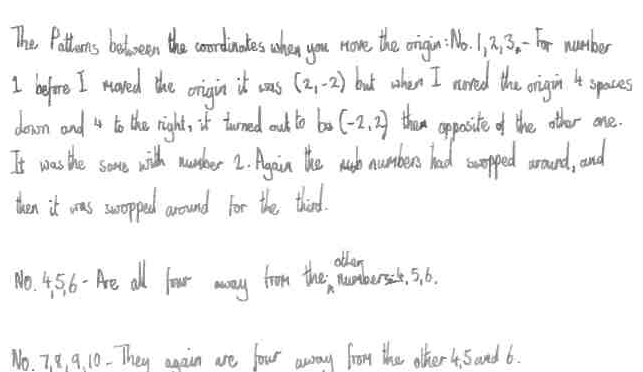 The Patterns between the coordinates when you move the origin: No. 1, 2, 3, - For number
1 before I moved the origin it was (2, -2) but when I moved the origin 4 spaces
down and 4 to the right, it turned out to be (-2, 2) the opposite of the other one.
It was the same with number 2. Again the numbers had swopped around, and
then it was swopped around for the third.
No. 4,5,6 - Are all four away from the other numbers 4, 5, 6.
No. 7,8,9,10 - They again are four away from the other 4,5 and 6.